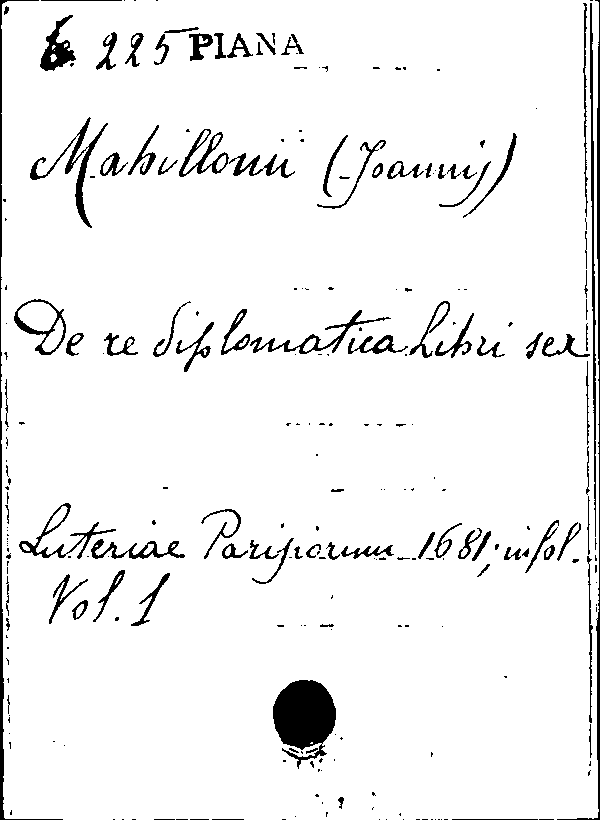 225 PIANA
Mabillonii (Joannis)
De re diplomatica Libri sex
Luteriae Parisiorum 1681; in fol.
Vol. 1